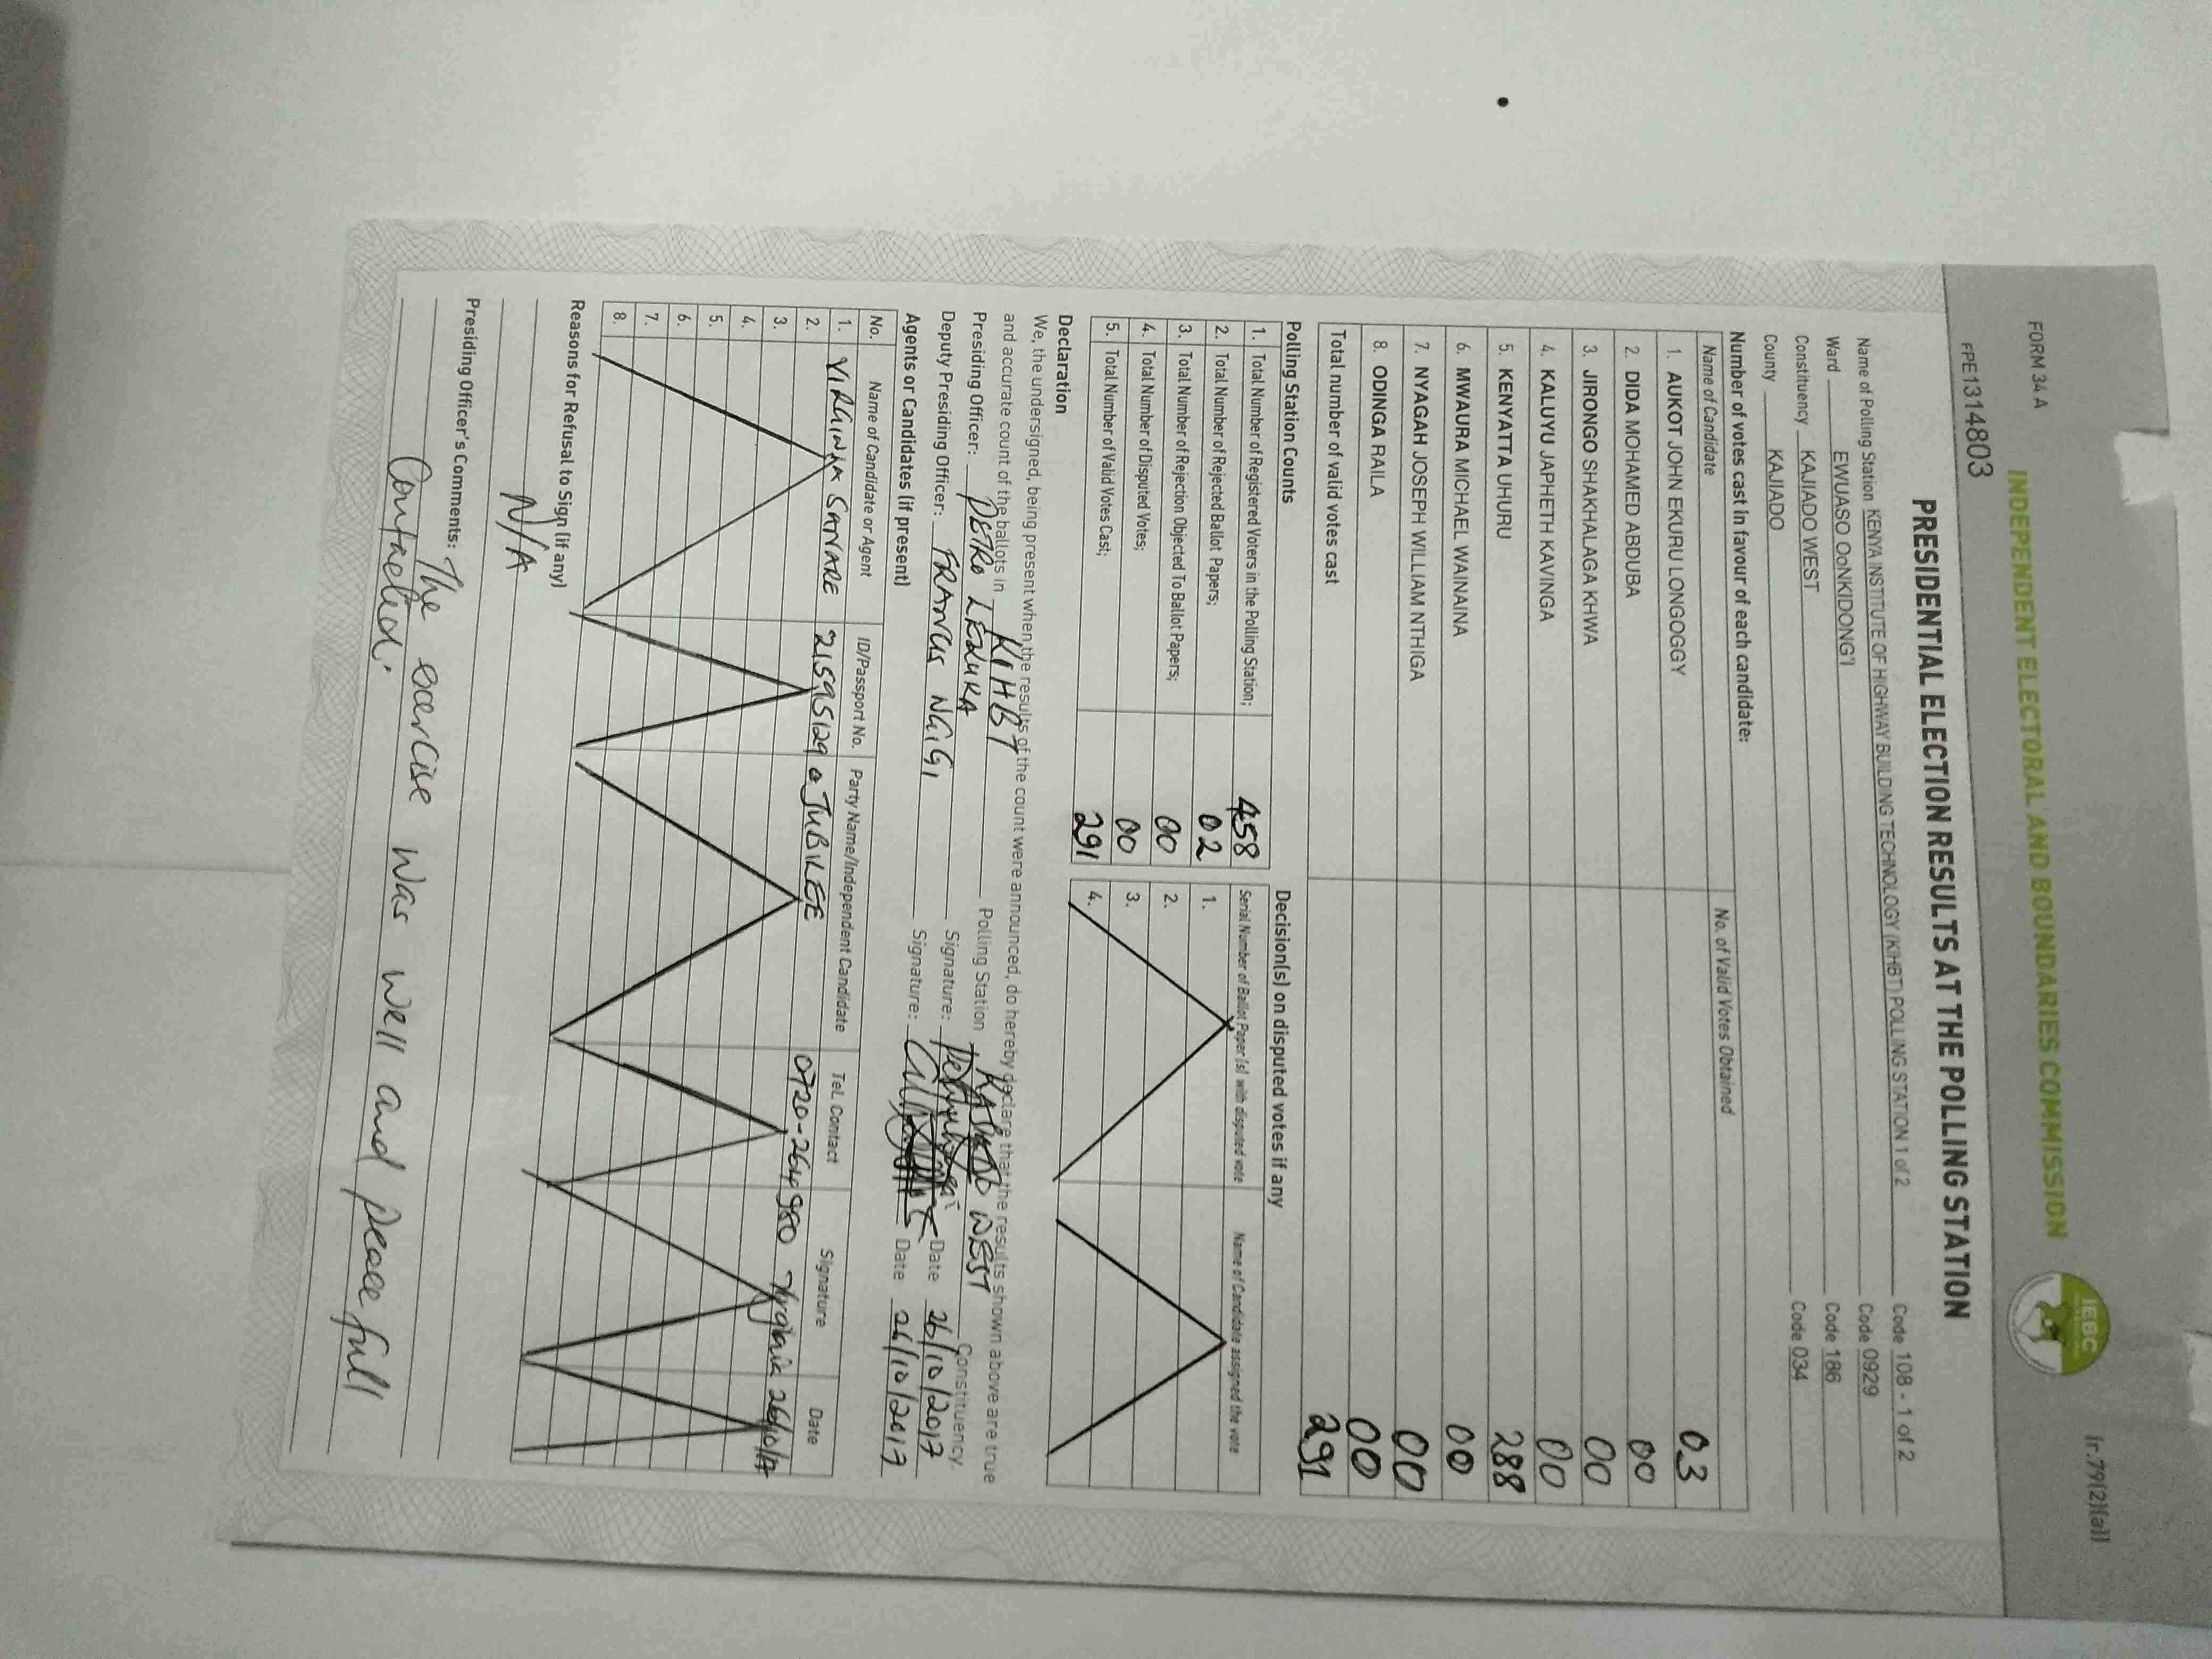 FORM 34 A
[r.79(2)(a)]
INDEPENDENT ELECTORAL AND BOUNDARIES COMMISSION
IEBC
FPE1314803
PRESIDENTIAL ELECTION RESULTS AT THE POLLING STATION
Name of Polling Station KENYA INSTITUTE OF HIGHWAY BUILDING TECHNOLOGY (KIHBT) POLLING STATION 1 of 2 Code 108 - 1 of 2
Ward EWUASO OoNKIDONG'I Code 0929
Constituency KAJIADO WEST Code 186
County KAJIADO Code 034
Number of votes cast in favour of each candidate:
Name of Candidate No. of Valid Votes Obtained
1. AUKOT JOHN EKURU LONGOGGY 03
2. DIDA MOHAMED ABDUBA 00
3. JIRONGO SHAKHALAGA KHWA 00
4. KALUYU JAPHETH KAVINGA 00
5. KENYATTA UHURU 288
6. MWAURA MICHAEL WAINAINA 00
7. NYAGAH JOSEPH WILLIAM NTHIGA 00
8. ODINGA RAILA 00
Total number of valid votes cast 291
Polling Station Counts
1. Total Number of Registered Voters in the Polling Station; 458
2. Total Number of Rejected Ballot Papers; 02
3. Total Number of Rejection Objected To Ballot Papers; 00
4. Total Number of Disputed Votes; 00
5. Total Number of Valid Votes Cast; 291
Decision(s) on disputed votes if any
Serial Number of Ballot Paper (s) with disputed vote Name of Candidate assigned the vote
1.
2.
3.
4.
Declaration
We, the undersigned, being present when the results of the count were announced, do hereby declare that the results shown above are true
and accurate count of the ballots in KIHBT Polling Station KAJIADO WEST Constituency.
Presiding Officer: PETRO Signature: Date 26/10/2017
Deputy Presiding Officer: FRANCIS NGIGI Signature: Date 26/10/2017
Agents or Candidates (if present)
No. Name of Candidate or Agent ID/Passport No. Party Name/Independent Candidate Tel. Contact Signature Date
1. VIRGINIA 21595129 JUBILEE 0720-264980 Virginia 26/10/17
2.
3.
4.
5.
6.
7.
8.
Reasons for Refusal to Sign (if any)
N/A
Presiding Officer's Comments: The exercise was well and peacefull
Contacted.